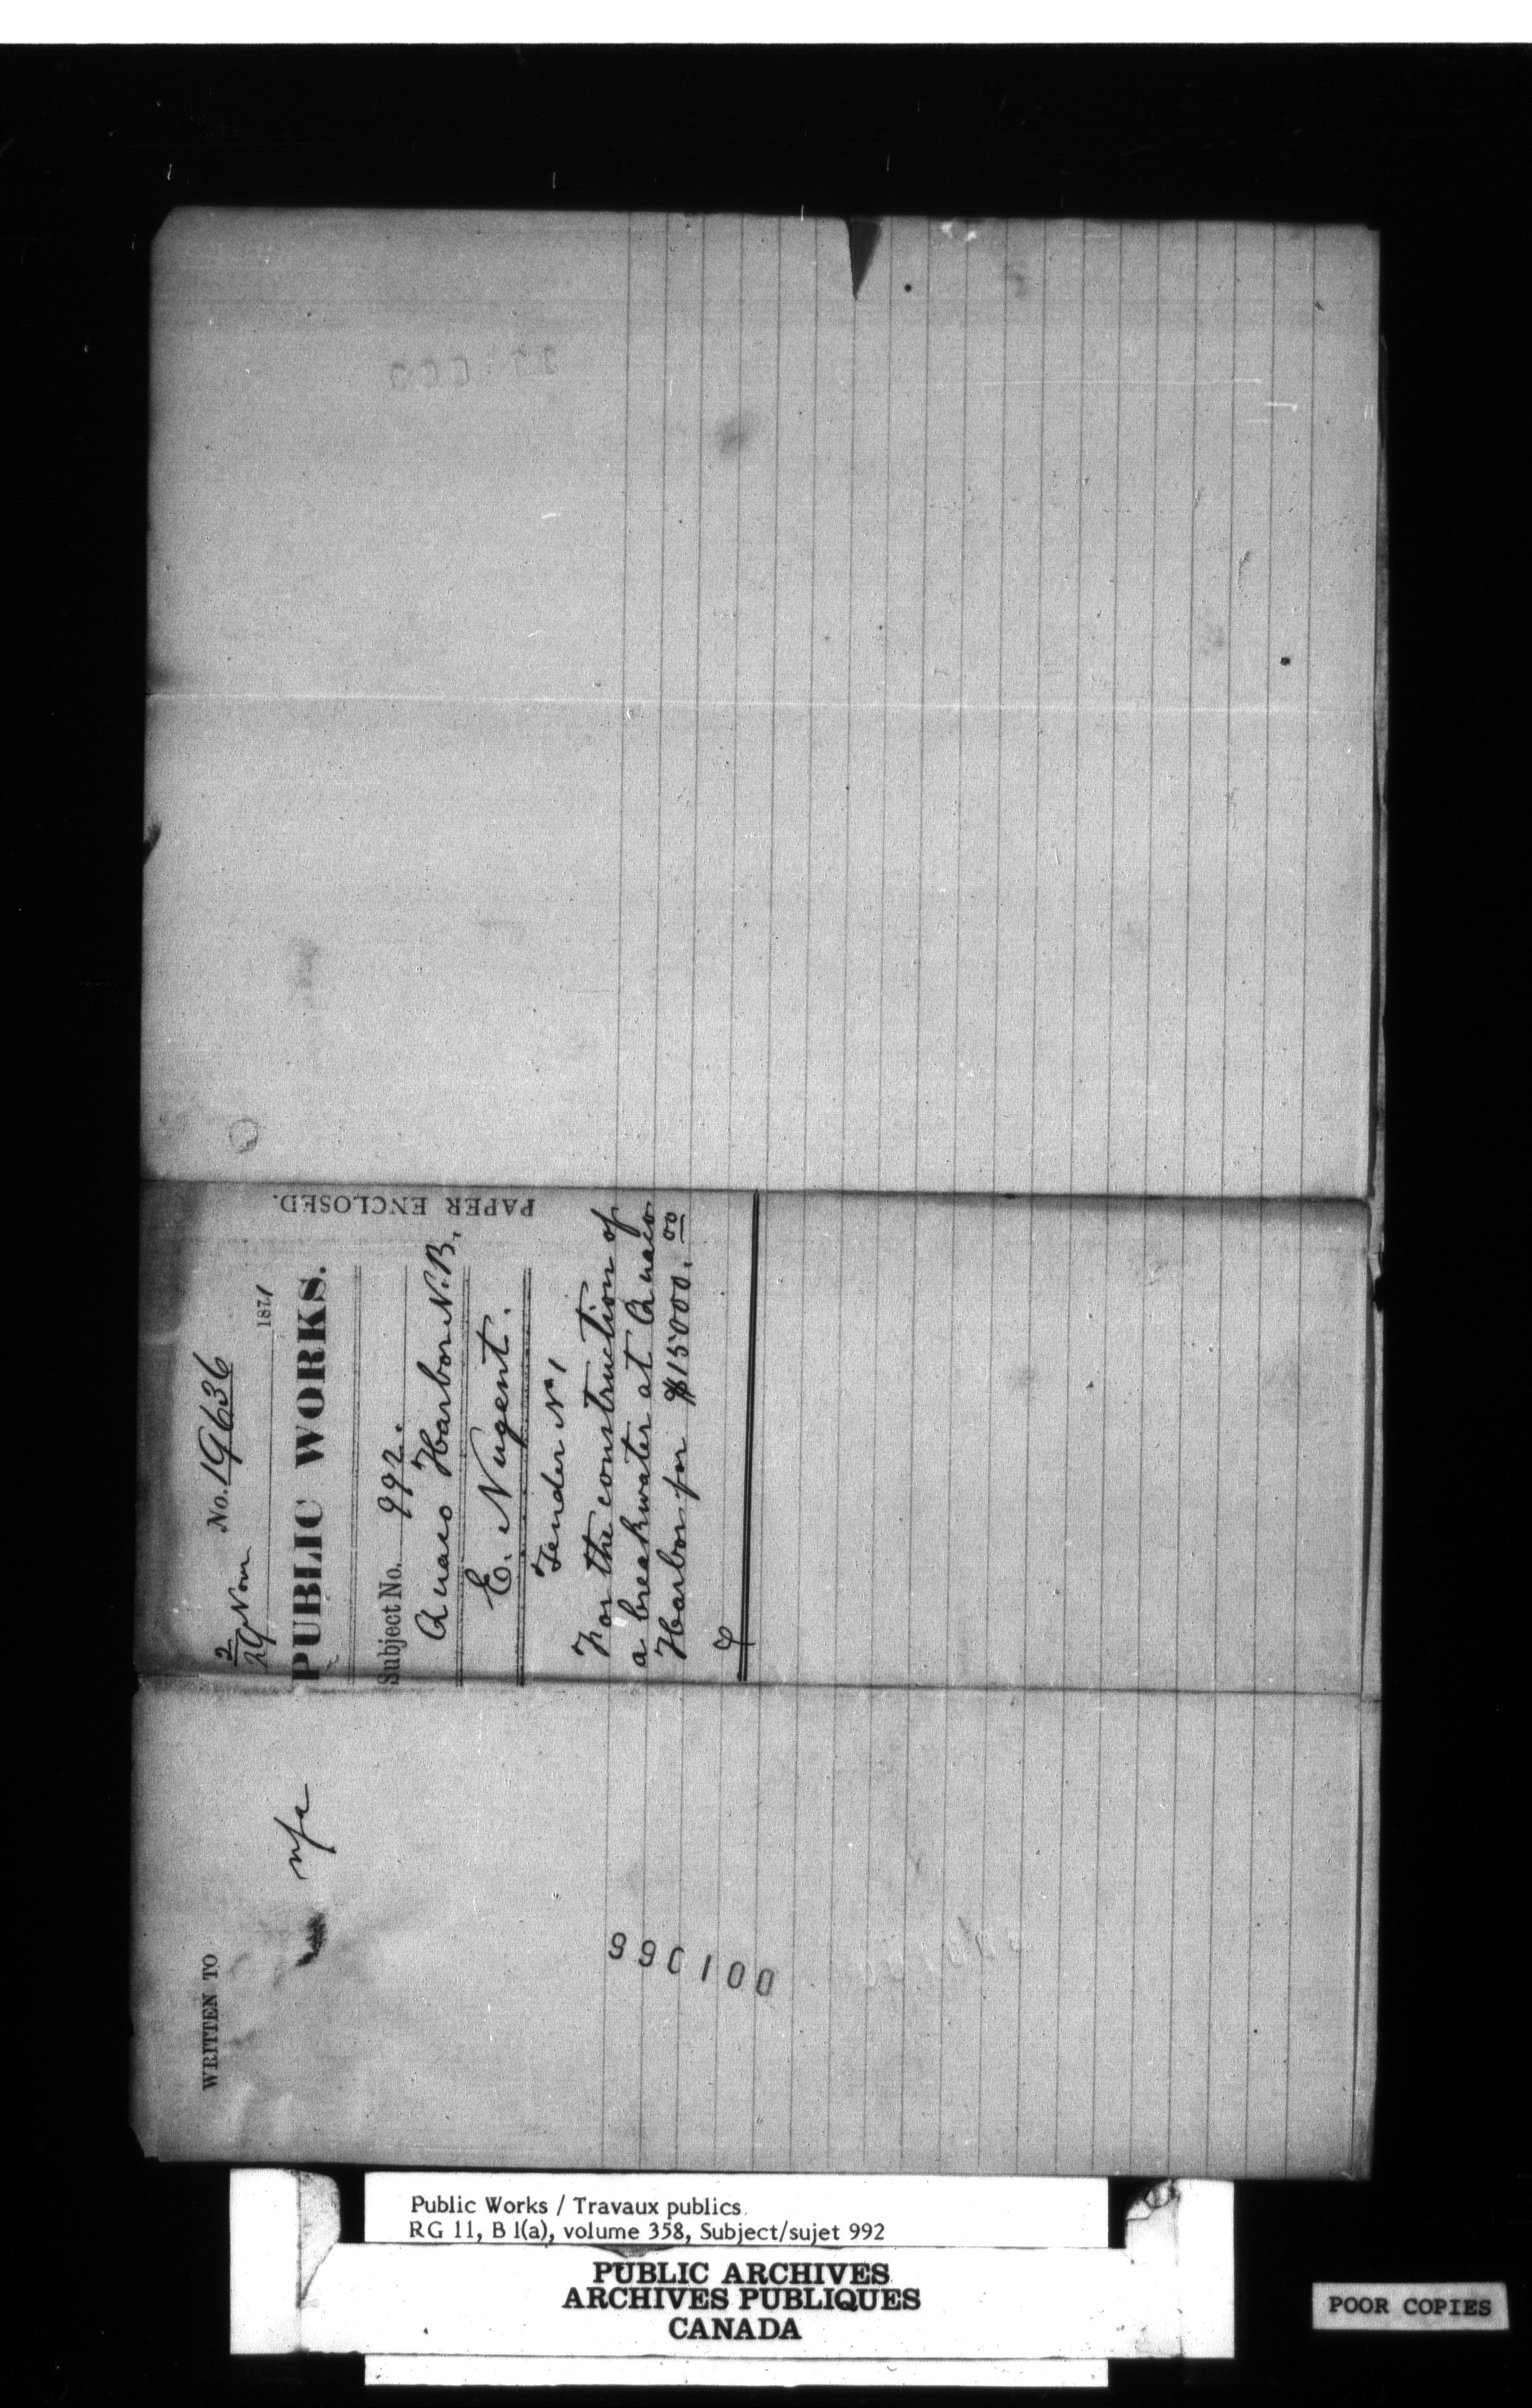 No. 19636
2
29 Nov 1871
PUBLIC WORKS.
Subject No. 992.
Quaco Harbor N.B.
E. Nugent.
Tender No 1
For the construction of
a breakwater at Quaco
Harbor for $15000.00
PAPER ENCLOSED.
WRITTEN TO
nfa
001066
Public Works / Travaux publics
RG 11, B 1(a), volume 358, Subject/sujet 992
PUBLIC ARCHIVES
ARCHIVES PUBLIQUES
CANADA
POOR COPIES